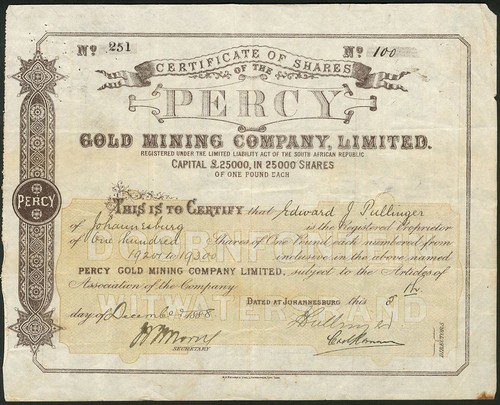 No 251 No 100
CERTIFICATE OF SHARES
OF THE
PERCY
GOLD MINING COMPANY, LIMITED.
REGISTERED UNDER THE LIMITED LIABILITY ACT OF THE SOUTH AFRICAN REPUBLIC
CAPITAL £25000, IN 25000 SHARES
OF ONE POUND EACH
PERCY
THIS IS TO CERTIFY that Edward J Pullinger
of Johannesburg is the Registered Proprietor
of One hundred Shares of One Pound each numbered from
19201 to 19300 inclusive in the above named
PERCY GOLD MINING COMPANY LIMITED, subject to the Articles of
Association of the Company
DOORNFONTEIN
WITWATERSRAND
DATED AT JOHANNESBURG this 5th
day of December 1888
Pullinger
SECRETARY
DIRECTORS